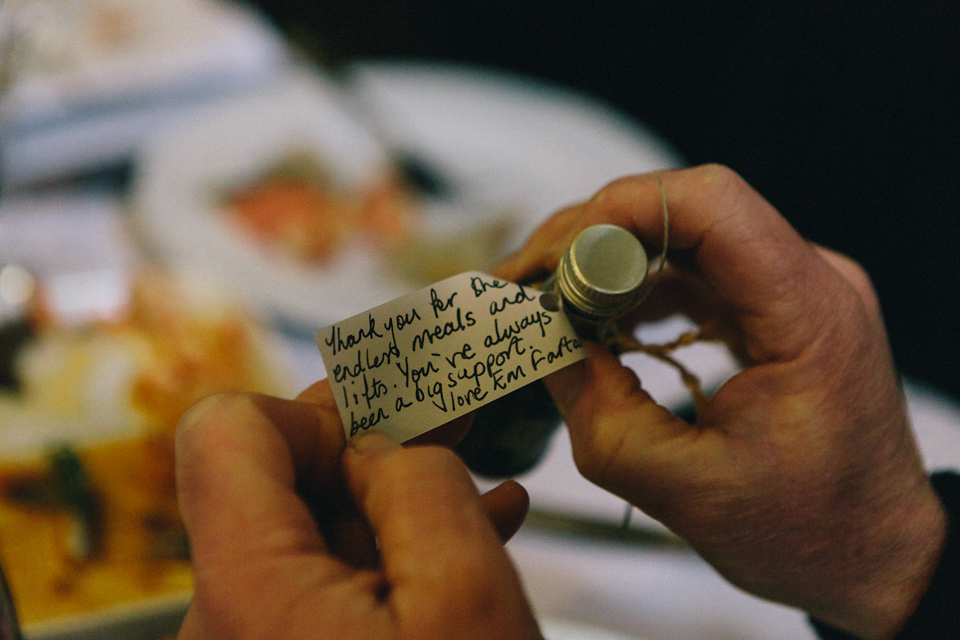 Thank you for the
endless meals and
lifts. You've always
been a big support.
love Em